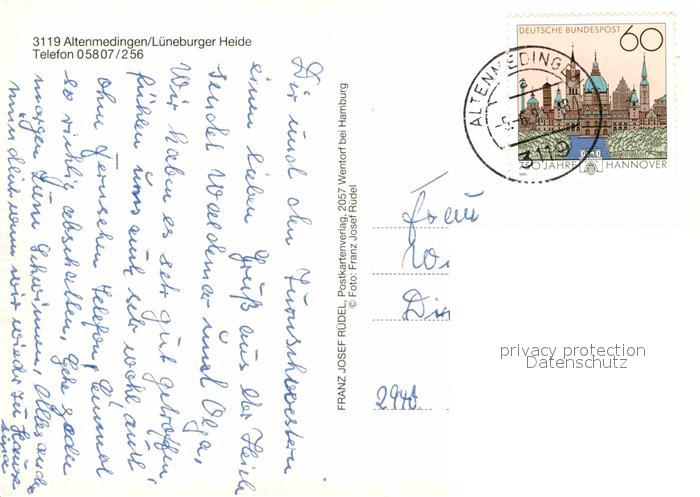 3119 Altenmedingen/Lüneburger Heide
Telefon 05807/256
Dir und den Turnschwestern
einen lieben Gruß aus der Heide
sendet Waldemar und Olga,
Wir haben es sehr gut getroffen,
fühlen uns auch sehr wohl auch
ohne Fernsehen Telefon, Einmal
so richtig abschalten, Gehe jeden
morgen zum Schwimmen, Alles andere
mündlich wenn wir wieder zu Hause
sind
FRANZ JOSEF RÜDEL, Postkartenverlag, 2057 Wentorf bei Hamburg
© Foto: Franz Josef Rüdel
DEUTSCHE BUNDESPOST 60
750 JAHRE HANNOVER
ALTENMEDINGEN
3119
Frau
Wi
Di
2940
privacy protection
Datenschutz